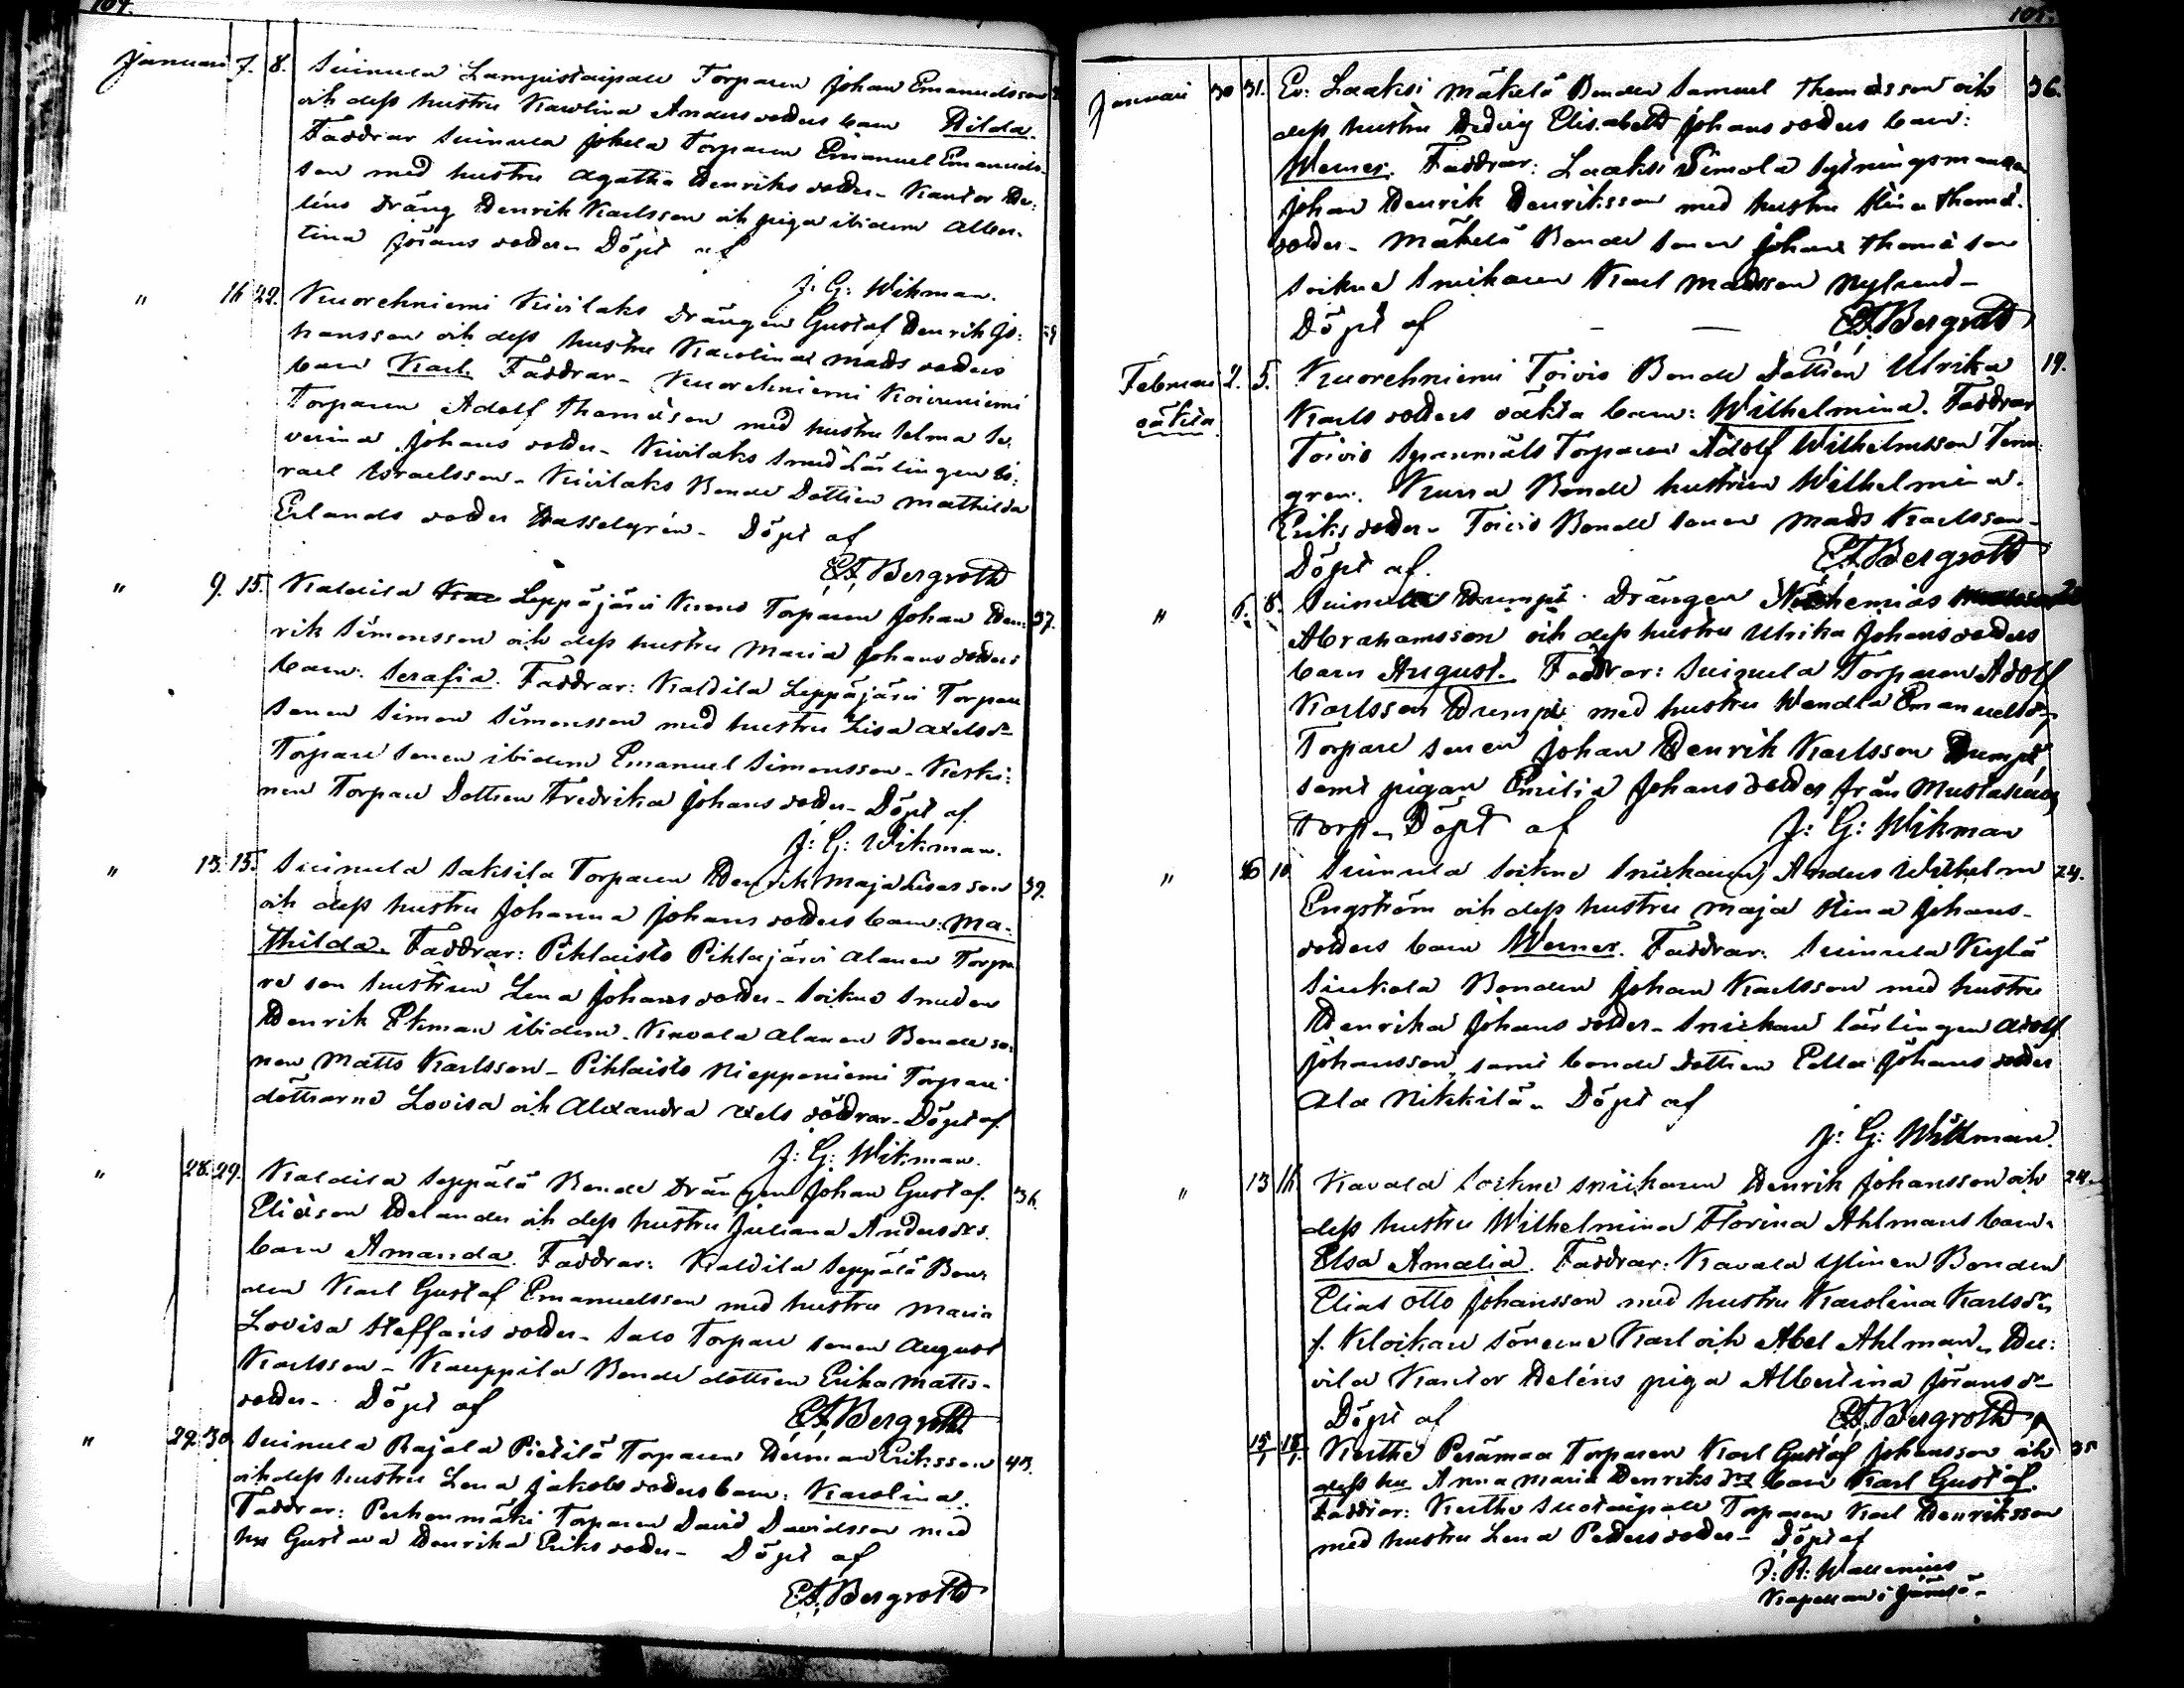 104.
Januari 7. 8. Suinula Lampistaipale Torparen Johan Emanuelsson
och dess hustru Karolina Andersdotters barn Hilda.
Faddrar Suinula Jokela Torparen Emanuel Emanuels-
son med hustru Agatha Henriksdotter - Kantor He-
léns dräng Henrik Karlsson och piga ibidem Alber-
tina Jöransdotter. Döpt af
J: G: Wikman.
" 16 22. Kuorehniemi Kivilaks drängen Gustaf Henrik Jo-
hansson och dess hustru Karolina Madsdotters
barn Karl. Faddrar - Kuorehniemi Koivuniemi
Torparen Adolf Thomasson med hustru Selma Se-
verina Johansdotter - Kivilaks Smed Lärlingen Is-
rael Israelsson - Kivilaks Bonde Dottren Mathilda
Erlandsdotter Hasselgrén - Döpt af
E A Bergroth
" 9. 15. Kaldila Leppäjärvi Torparen Johan Hen- 37.
rik Simonsson och dess hustru Maria Johansdotters
barn: Serafia. Faddrar: Kaldila Leppäjärvi Torpare
Sonen Simon Simonsson med hustru Lisa Axelsdr
Torpare Sonen ibidem Emanuel Simonsson - Keski-
nen Torpare Dottren Fredrika Johansdotter - Döpt af
J: G: Wikman.
" 13. 15. Suinula Saksila Torparen Henrik Majalisasson 39.
och dess hustru Johanna Johansdotters barn: Ma-
thilda. Faddrar: Pihlaisto Pihlajärvi Alanen Torpa-
re son hustrun Lena Johansdotter - Sockne Smeden
Henrik Ekman ibidem. Kavala Alanen Bonde so-
nen Matts Karlsson - Pihlaisto Niepponiemi Torpare
döttrarne Lovisa och Alexandra Axels döttrar - Döpt af
J: G: Wikman.
" 28. 29. Kaldila Seppälä Bonde drängen Johan Gustaf 36.
Eliasson Helander och dess hustru Juliana Andersdrs
barn Amanda. Faddrar: Kaldila Seppälä Bon-
den Karl Gustaf Emanuelsson med hustru Maria
Lovisa Steffansdotter - Salo Torpare sonen August
Karlsson - Kauppila Bonde dottren Erika Matts-
dotter - Döpt af
E A Bergroth
" 29. 30 Suinula Rajala Pietilä Torparen Herman Eriksson 43.
och dess hustru Lena Jakobsdotters barn: Karolina.
Faddrar: Perhonmäki Torparen David Davidsson med
hu Gustava Henrika Eriksdotter - Döpt af
E A Bergroth
105.
Januari 30 31. Ev: Laaksi Mäkelä Bonden Samuel Thomasson och 36.
dess hustru Hedvig Elisabeth Johansdotters barn:
Werner. Faddrar: Laaksi Simola Sytningsmannen
Johan Henrik Henriksson med hustru Stina Thomæ-
dotter - Mäkelä Bonde Sonen Johan Thomasson
Sockne Snickaren Karl Madsson Nylund -
Döpt af - - E A Bergroth
Februari 2. 5. Kuorehniemi Toivio Bonde Dottren Ulrika 19.
oäkta Karlsdotters oäkta barn: Wilhelmina. Faddrar
Toivio Spanmåls Torparen Adolf Wilhelmsson Ten-
gren. Kurra Bonde hustrun Wilhelmina
Eriksdotter - Toivio Bonde Sonen Mads Karlsson -
Döpt af. E A Bergroth
" 6. 8. Suinula Humpi drängen Nehemias
Abrahamsson och dess hustru Ulrika Johansdotters
barn August. Faddrar: Suinula Torparen Adolf
Karlsson Humpi med hustru Wendla Emanuelsdr
Torpare sonen Johan Henrik Karlsson Humpi,
samt pigan Emilia Johansdotter från Mustalahti
torp - Döpt af J: G: Wikman
" 6 10 Suinula Sockne Snickaren Anders Wilhelm 24.
Engström och dess hustru Maja Stina Johans-
dotters barn Werner. Faddrar: Suinula Kylä
Siukola Bonden Johan Karlsson med hustru
Henrika Johansdotter - Snickare lärlingen Adolf
Johansson, samt bonde dottren Edla Johansdotter
Ala Nikkilä. Döpt af
J: G: Wikman.
" 13 16 Kavala Sockne Snickaren Henrik Johansson och 24.
dess hustru Wilhelmina Florina Ahlmans barn
Elsa Amalia. Faddrar: Kavala Ylinen Bonden
Elias Otto Johansson med hustru Karolina Karlsdr
f. Klockare Sönerne Karl och Abel Ahlman -
Kantor Heléns piga Albertina Jöransdr -
Döpt af E A Bergroth
15/1 18/1 Kerthe Perämaa Torparen Karl Gustaf Johansson och 35
dess hu Anna Maria Henriksdrs barn Karl Gustaf.
Faddrar: Kerthe Suotaipale Torparen Karl Henriksson
med hustru Lena Pedersdotter - Döpt af
J: R: Wallenius
Kapellan i Jämsä -